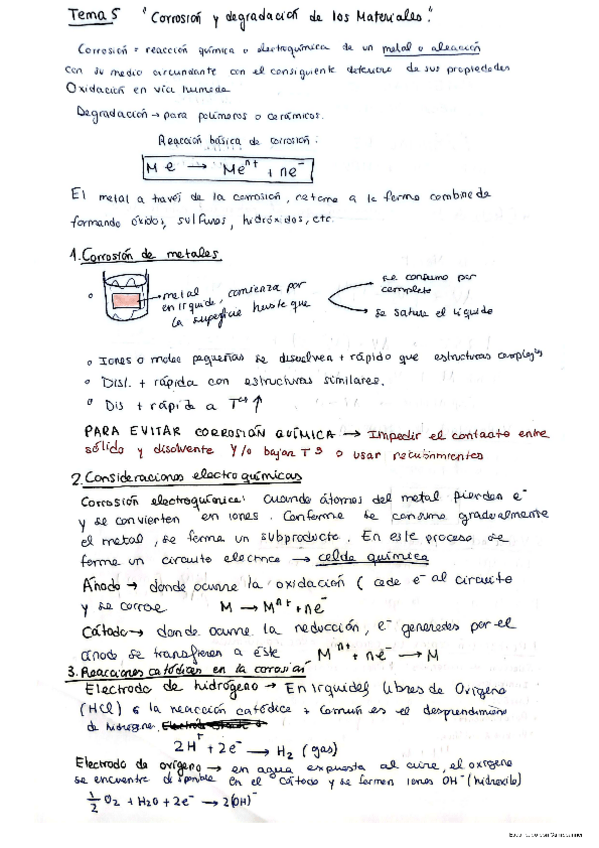 Tema 5 "Corrosión y degradación de los Materiales".
Corrosión = reacción química o electroquímica de un metal o aleación
con su medio circundante con el consiguiente deterioro de sus propiedades
Oxidación en vía humeda
Degradación → para polímeros o cerámicos.
Reacción básica de corrosión:
Me → Meⁿ⁺ + ne⁻
El metal a través de la corrosión, retorna a la forma combinada
formando óxidos, sulfuros, hidróxidos, etc.
1. Corrosión de metales
→ metal en líquido, comienza por
la superficie hasta que
se consuma por
completo
se sature el líquido
o Iones o molec pequeñas se disuelven + rápido que estructuras complejas
o Disl. + rápida con estructuras similares.
o Dis + rápida a Tª ↑
PARA EVITAR CORROSIÓN QUÍMICA → Impedir el contacto entre
sólido y disolvente Y/o bajar Tª o usar recubrimientos
2. Consideraciones electroquímicas
Corrosión electroquímica: Cuando átomos del metal pierden e⁻
y se convierten en iones. Conforme se consume gradualmente
el metal, se forma un subproducto. En este proceso se
forma un circuito electrico → celda química
Ánodo → donde ocurre la oxidación ( cede e⁻ al circuito
y se corroe M → Mⁿ⁺ + ne⁻
Cátodo → donde ocurre la reducción, e⁻ generados por el
ánodo se transfieren a éste Mⁿ⁺ + ne⁻ → M
3. Reacciones catódicas en la corrosión
Electrodo de hidrógeno → En líquidos libres de Oxígeno
(HCl) la reacción catódica + común es el desprendimiento
de hidrogeno.
2H⁺ + 2e⁻ → H₂ (gas)
Electrodo de oxígeno → en agua expuesta al aire, el oxígeno
se encuentra disponible en el cátodo y se forman iones OH⁻ (hidroxilo)
½ O₂ + H₂O + 2e⁻ → 2(OH)⁻